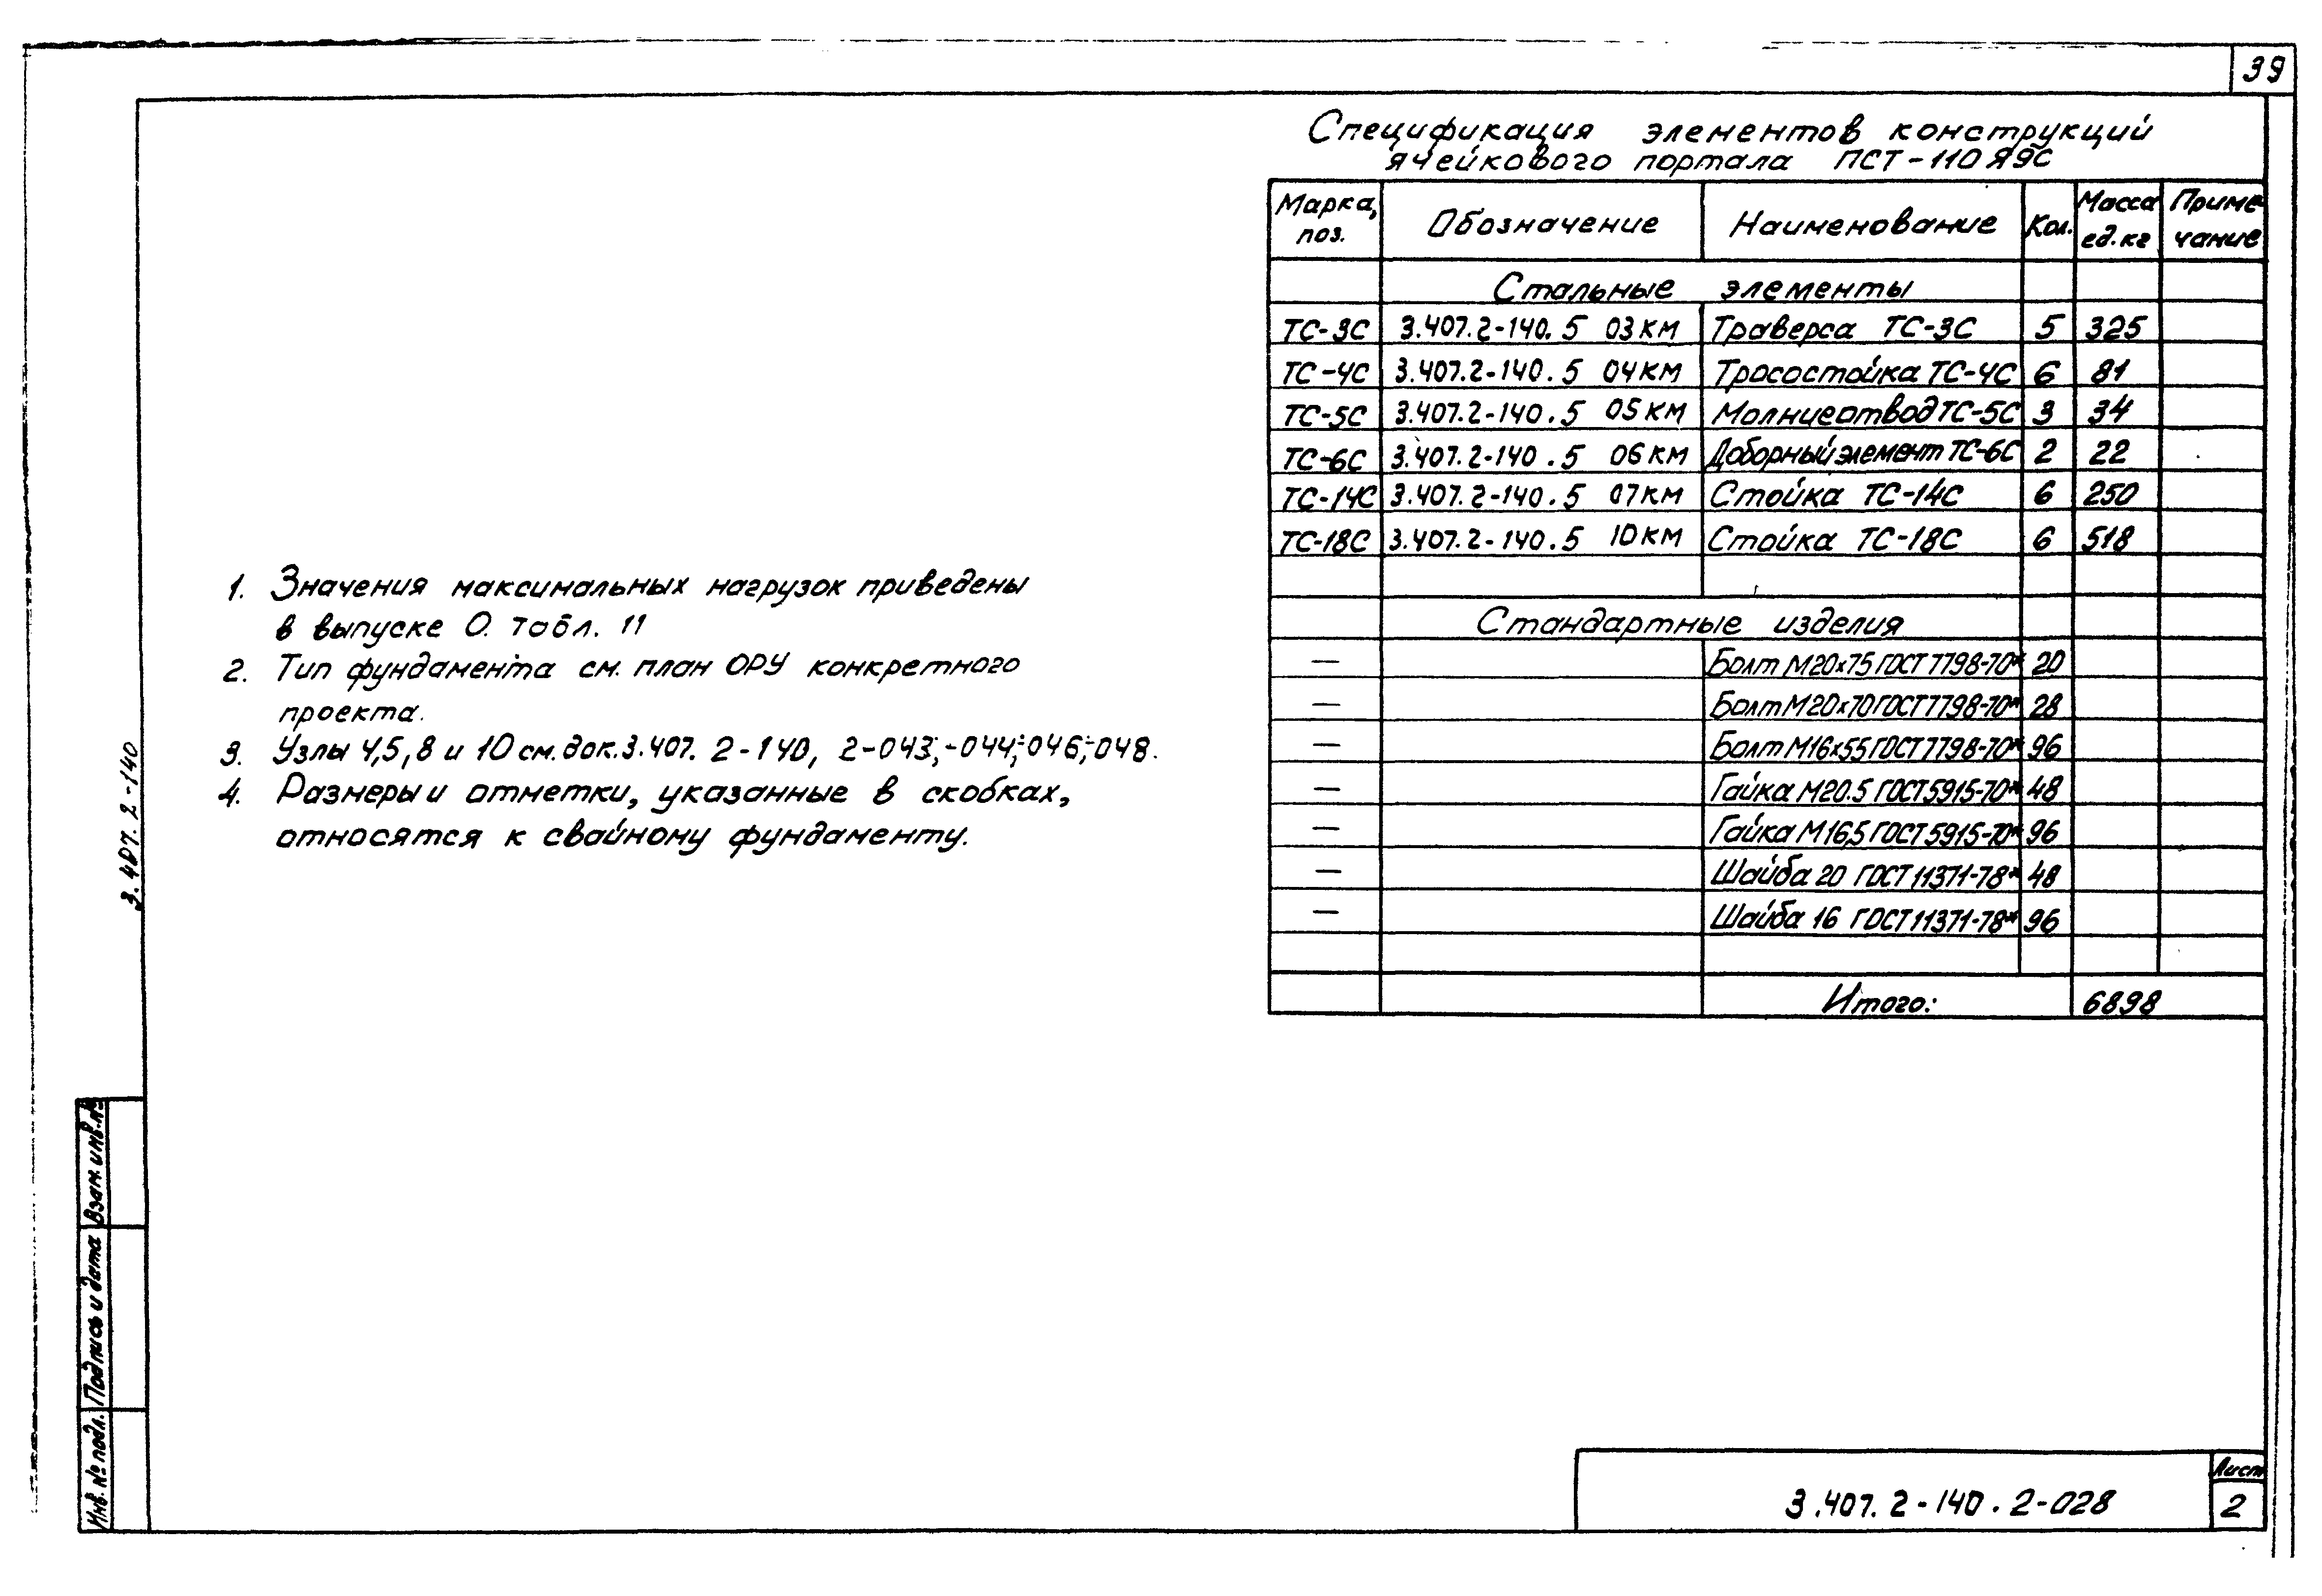 39
Спецификация элементов конструкций
ячейкового портала ПСТ-110Я9С
Марка, поз. Обозначение Наименование Кол. Масса ед. кг Примечание
Стальные элементы
ТС-3С 3.407.2-140.5 03КМ Траверса ТС-3С 5 325
ТС-4С 3.407.2-140.5 04КМ Тросостойка ТС-4С 6 81
ТС-5С 3.407.2-140.5 05КМ Молниеотвод ТС-5С 3 34
ТС-6С 3.407.2-140.5 06КМ Доборный элемент ТС-6С 2 22
ТС-14С 3.407.2-140.5 07КМ Стойка ТС-14С 6 250
ТС-18С 3.407.2-140.5 10КМ Стойка ТС-18С 6 518
Стандартные изделия
— Болт М20х75 ГОСТ 7798-70* 20
— Болт М20х70 ГОСТ 7798-70* 28
— Болт М16х55 ГОСТ 7798-70* 96
— Гайка М20.5 ГОСТ 5915-70* 48
— Гайка М16,5 ГОСТ 5915-70* 96
— Шайба 20 ГОСТ 11371-78* 48
— Шайба 16 ГОСТ 11371-78* 96
Итого: 6898
1. Значения максимальных нагрузок приведены
в выпуске 0. табл. 11
2. Тип фундамента см. план ОРУ конкретного
проекта.
3. Узлы 4,5,8 и 10 см. док. 3.407.2-140, 2-043; -044; -046; -048.
4. Размеры и отметки, указанные в скобках,
относятся к свайному фундаменту.
3.407.2-140
Взам. инв. №
Подпись и дата
Инв. № подл.
3.407.2-140.2-028
Лист
2